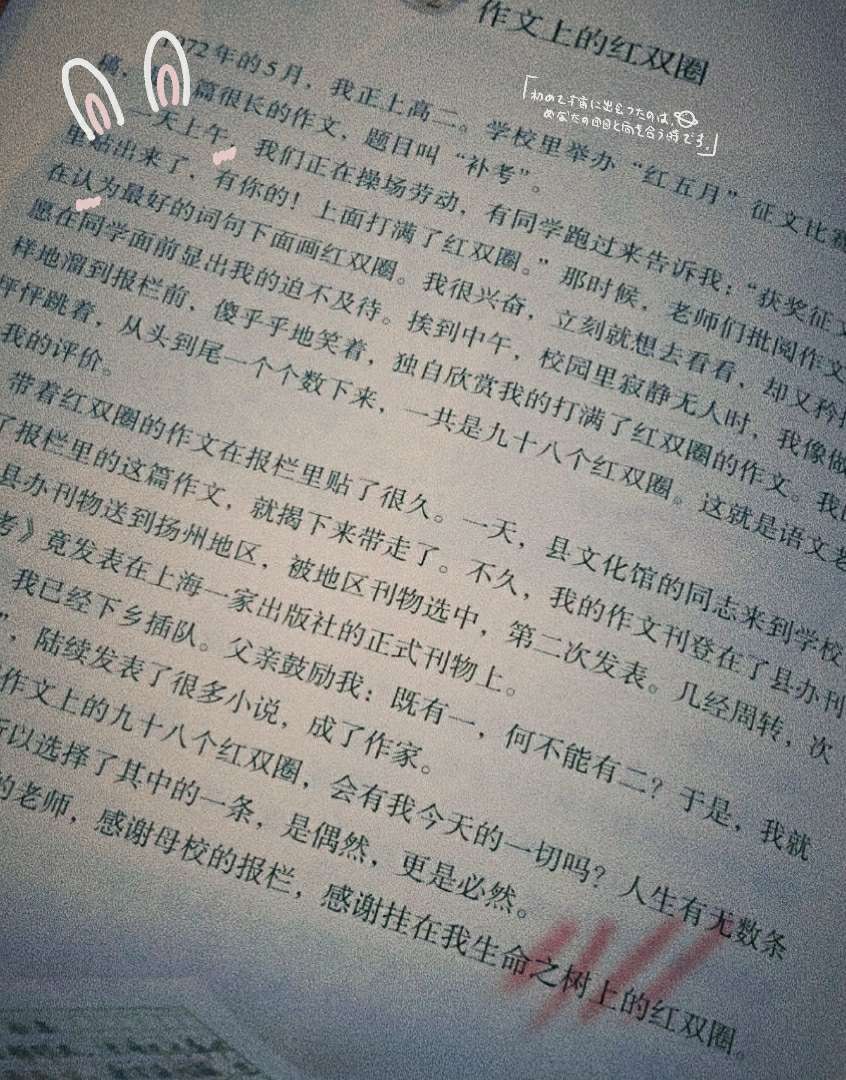 作文上的红双圈
972年的5月，我正上高二。学校里举办“红五月”征文比赛
稿，篇很长的作文，题目叫“补考”。
「初めて宇宙に出会ったのは、
あなたの目と向き合う時です。」
一天上午，我们正在操场劳动，有同学跑过来告诉我：“获奖征文
里贴出来了，有你的！上面打满了红双圈。”那时候，老师们批阅作文
在认为最好的词句下面画红双圈。我很兴奋，立刻就想去看看，却又矜
愿在同学面前显出我的迫不及待。挨到中午，校园里寂静无人时，我像做
样地溜到报栏前，傻乎乎地笑着，独自欣赏我的打满了红双圈的作文。我
怦怦跳着，从头到尾一个个数下来，一共是九十八个红双圈。这就是语文老
我的评价。
带着红双圈的作文在报栏里贴了很久。一天，县文化馆的同志来到学校
了报栏里的这篇作文，就揭下来带走了。不久，我的作文刊登在了县办刊
县办刊物送到扬州地区，被地区刊物选中，第二次发表。几经周转，次
考》竟发表在上海一家出版社的正式刊物上。
我已经下乡插队。父亲鼓励我：既有一，何不能有二？于是，我就
”，陆续发表了很多小说，成了作家。
作文上的九十八个红双圈，会有我今天的一切吗？人生有无数条
所以选择了其中的一条，是偶然，更是必然。
的老师，感谢母校的报栏，感谢挂在我生命之树上的红双圈。